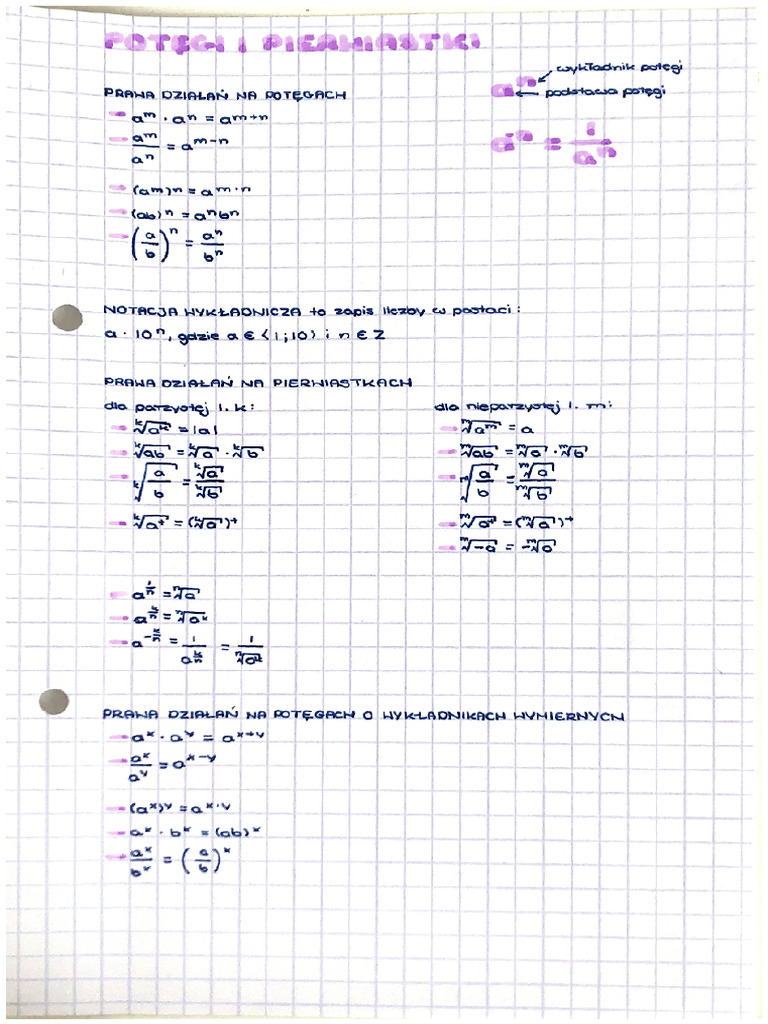 POTĘGI I PIERWIASTKI
wykładnik potęgi
aⁿ
podstawa potęgi
PRAWA DZIAŁAŃ NA POTĘGACH
a^m · a^n = a^(m+n)
a^m / a^n = a^(m-n)
a^(-n) = 1 / a^n
(a^m)^n = a^(m·n)
(ab)^n = a^n b^n
(a/b)^n = a^n / b^n
NOTACJA WYKŁADNICZA to zapis liczby w postaci:
a · 10^n, gdzie a ∈ ⟨1;10) i n ∈ Z
PRAWA DZIAŁAŃ NA PIERWIASTKACH
dla parzystej l. k:
ᵏ√(a^k) = |a|
ᵏ√(ab) = ᵏ√a · ᵏ√b
ᵏ√(a/b) = ᵏ√a / ᵏ√b
ᵏ√(a^t) = (ᵏ√a)^t
dla nieparzystej l. m:
ᵐ√(a^m) = a
ᵐ√(ab) = ᵐ√a · ᵐ√b
ᵐ√(a/b) = ᵐ√a / ᵐ√b
ᵐ√(a^t) = (ᵐ√a)^t
ᵐ√(-a) = -ᵐ√a
a^(1/n) = ⁿ√a
a^(k/n) = ⁿ√(a^k)
a^(-k/n) = 1 / a^(k/n) = 1 / ⁿ√(a^k)
PRAWA DZIAŁAŃ NA POTĘGACH O WYKŁADNIKACH WYMIERNYCH
a^x · a^y = a^(x+y)
a^x / a^y = a^(x-y)
(a^x)^y = a^(x·y)
a^x · b^x = (ab)^x
a^x / b^x = (a/b)^x